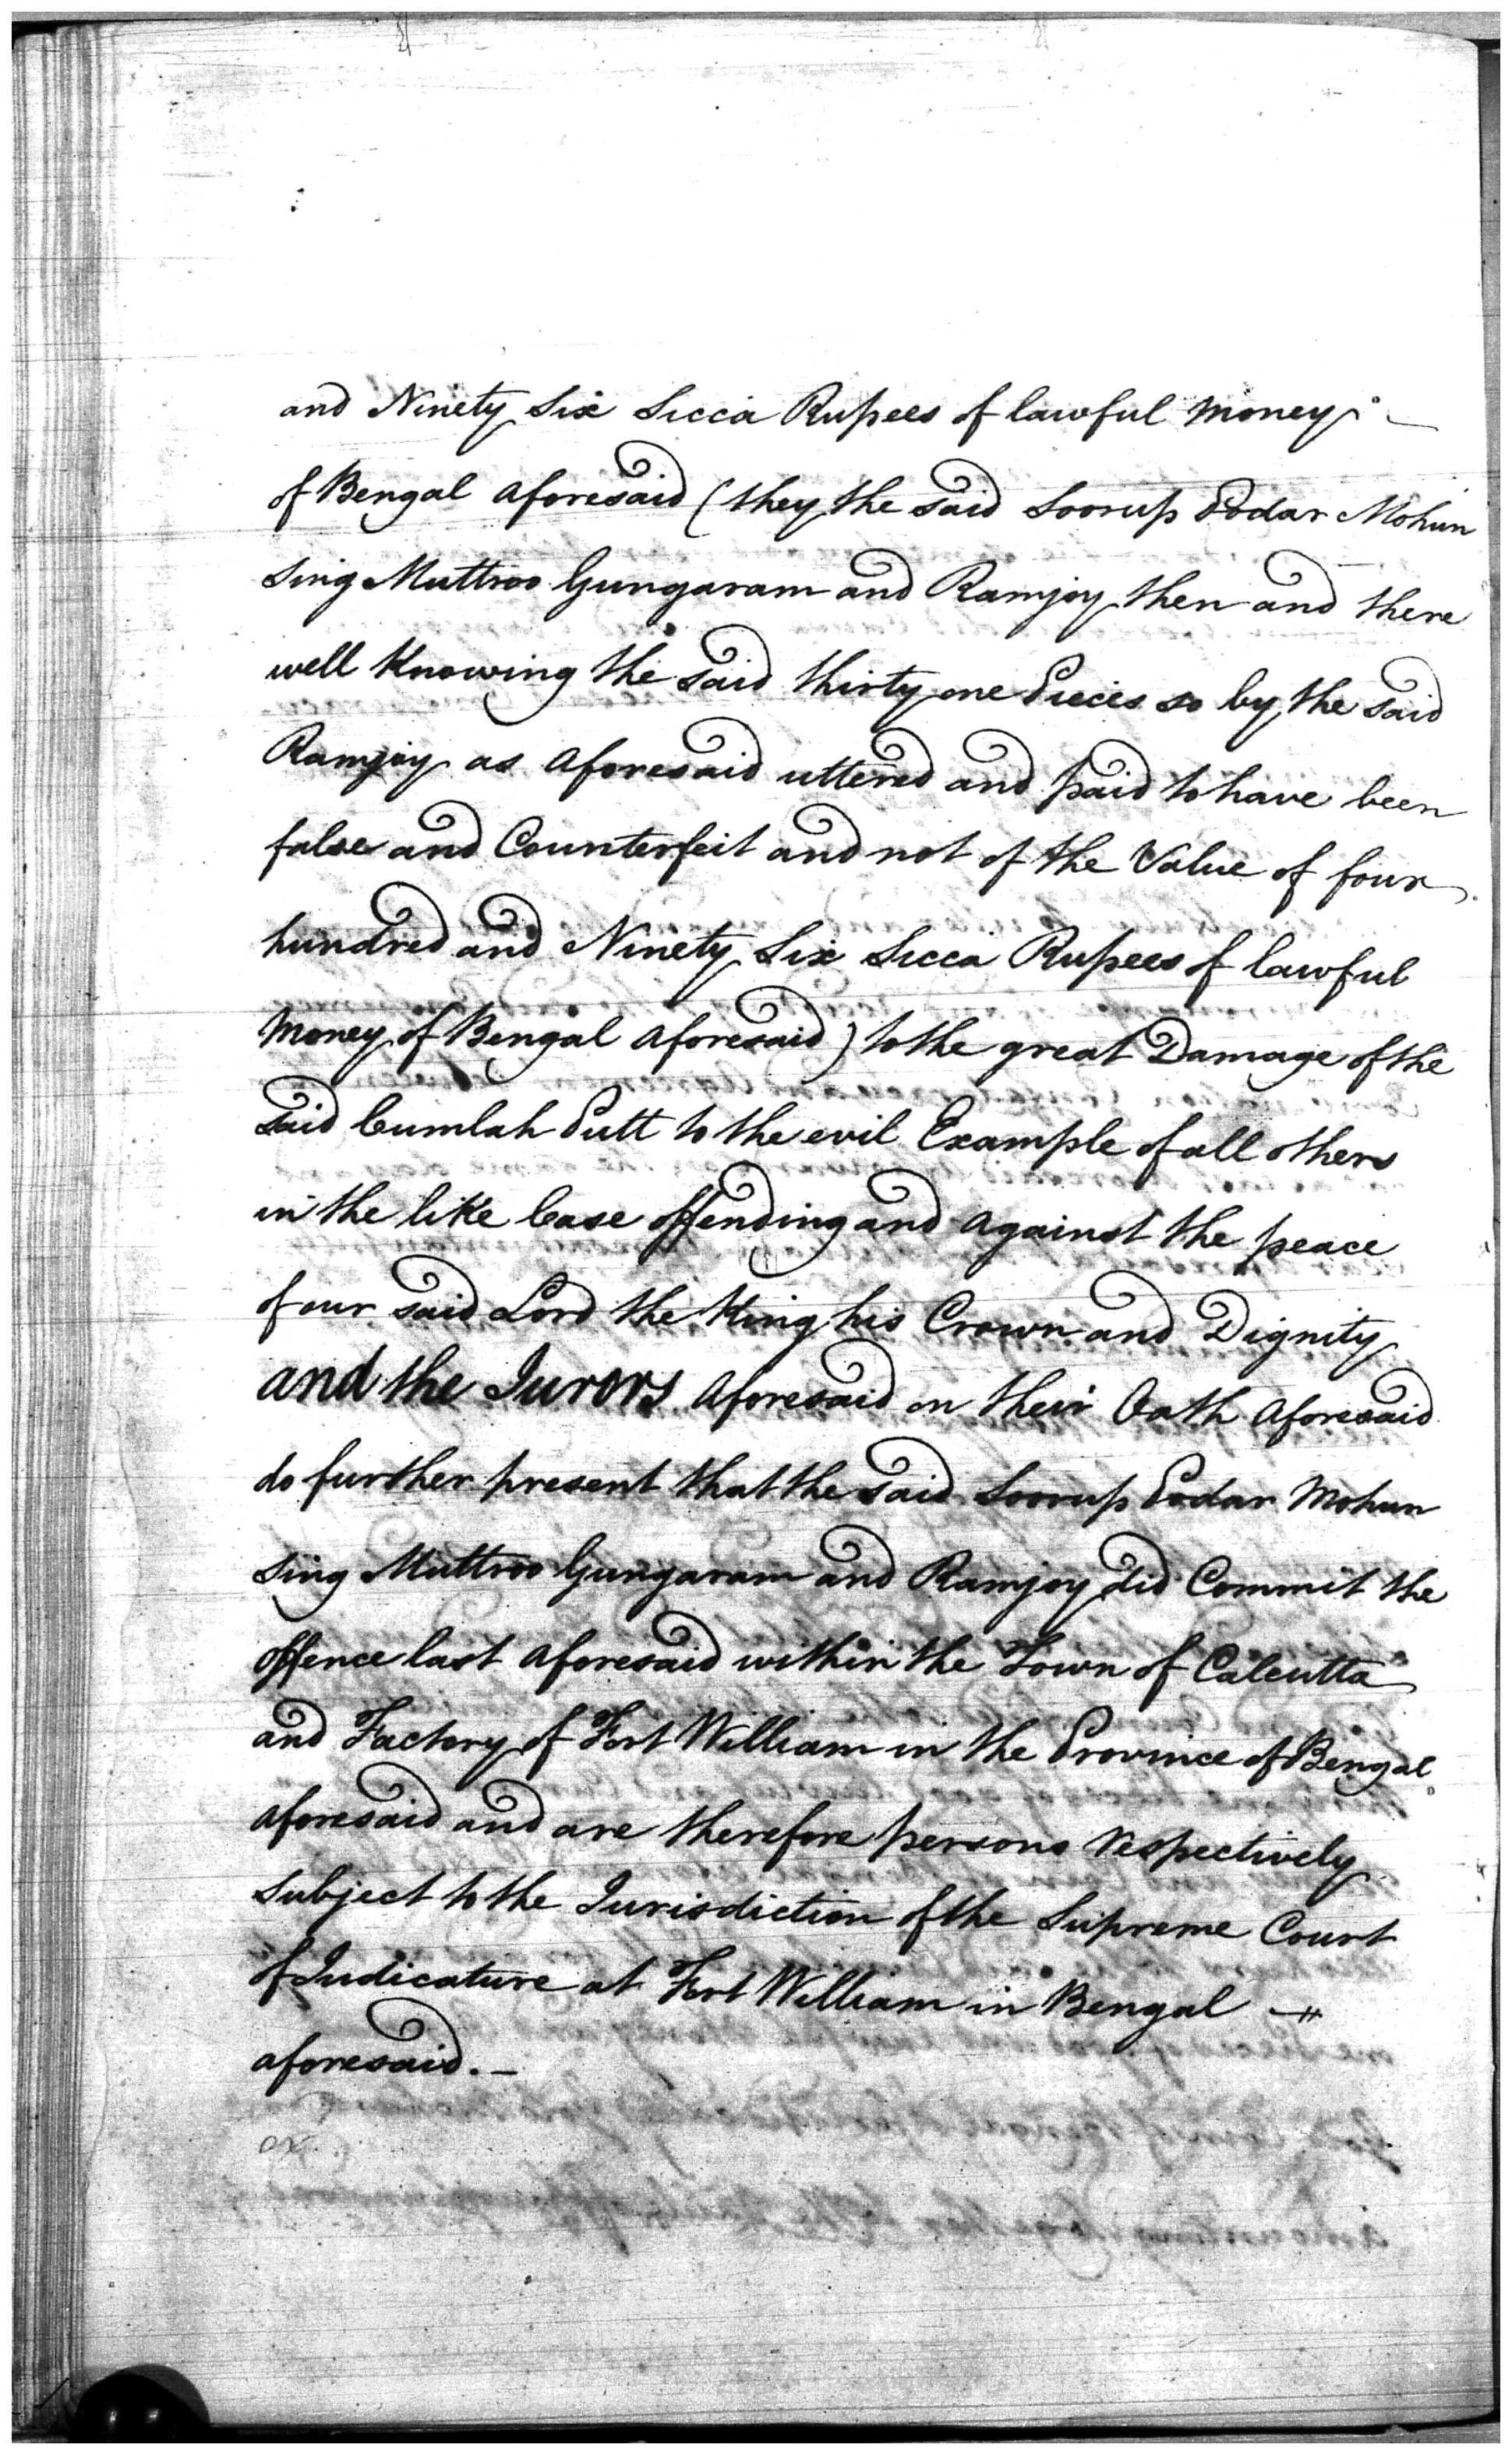 and Ninety Six Sicca Rupees of lawful money
of Bengal aforesaid (they the said Soorup Podar Mohun
Sing Muttroo Gungaram and Ramjoy then and there
well Knowing the said thirty one Pieces so by the said
Ramjoy as aforesaid uttered and paid to have been
false and Counterfeit and not of the Value of four
hundred and Ninety Six Sicca Rupees of lawful
Money of Bengal aforesaid) to the great Damage of the
said Cumlah Putt to the evil Example of all others
in the like Case offending and against the peace
of our said Lord the King his Crown and Dignity
and the Jurors aforesaid on their Oath aforesaid
do further present that the said Soorup Podar Mohun
Sing Muttroo Gungaram and Ramjoy did Commit the
offence last aforesaid within the Town of Calcutta
and Factory of Fort William in the Province of Bengal
aforesaid and are therefore persons respectively
Subject to the Jurisdiction of the Supreme Court
of Judicature at Fort William in Bengal
aforesaid. –